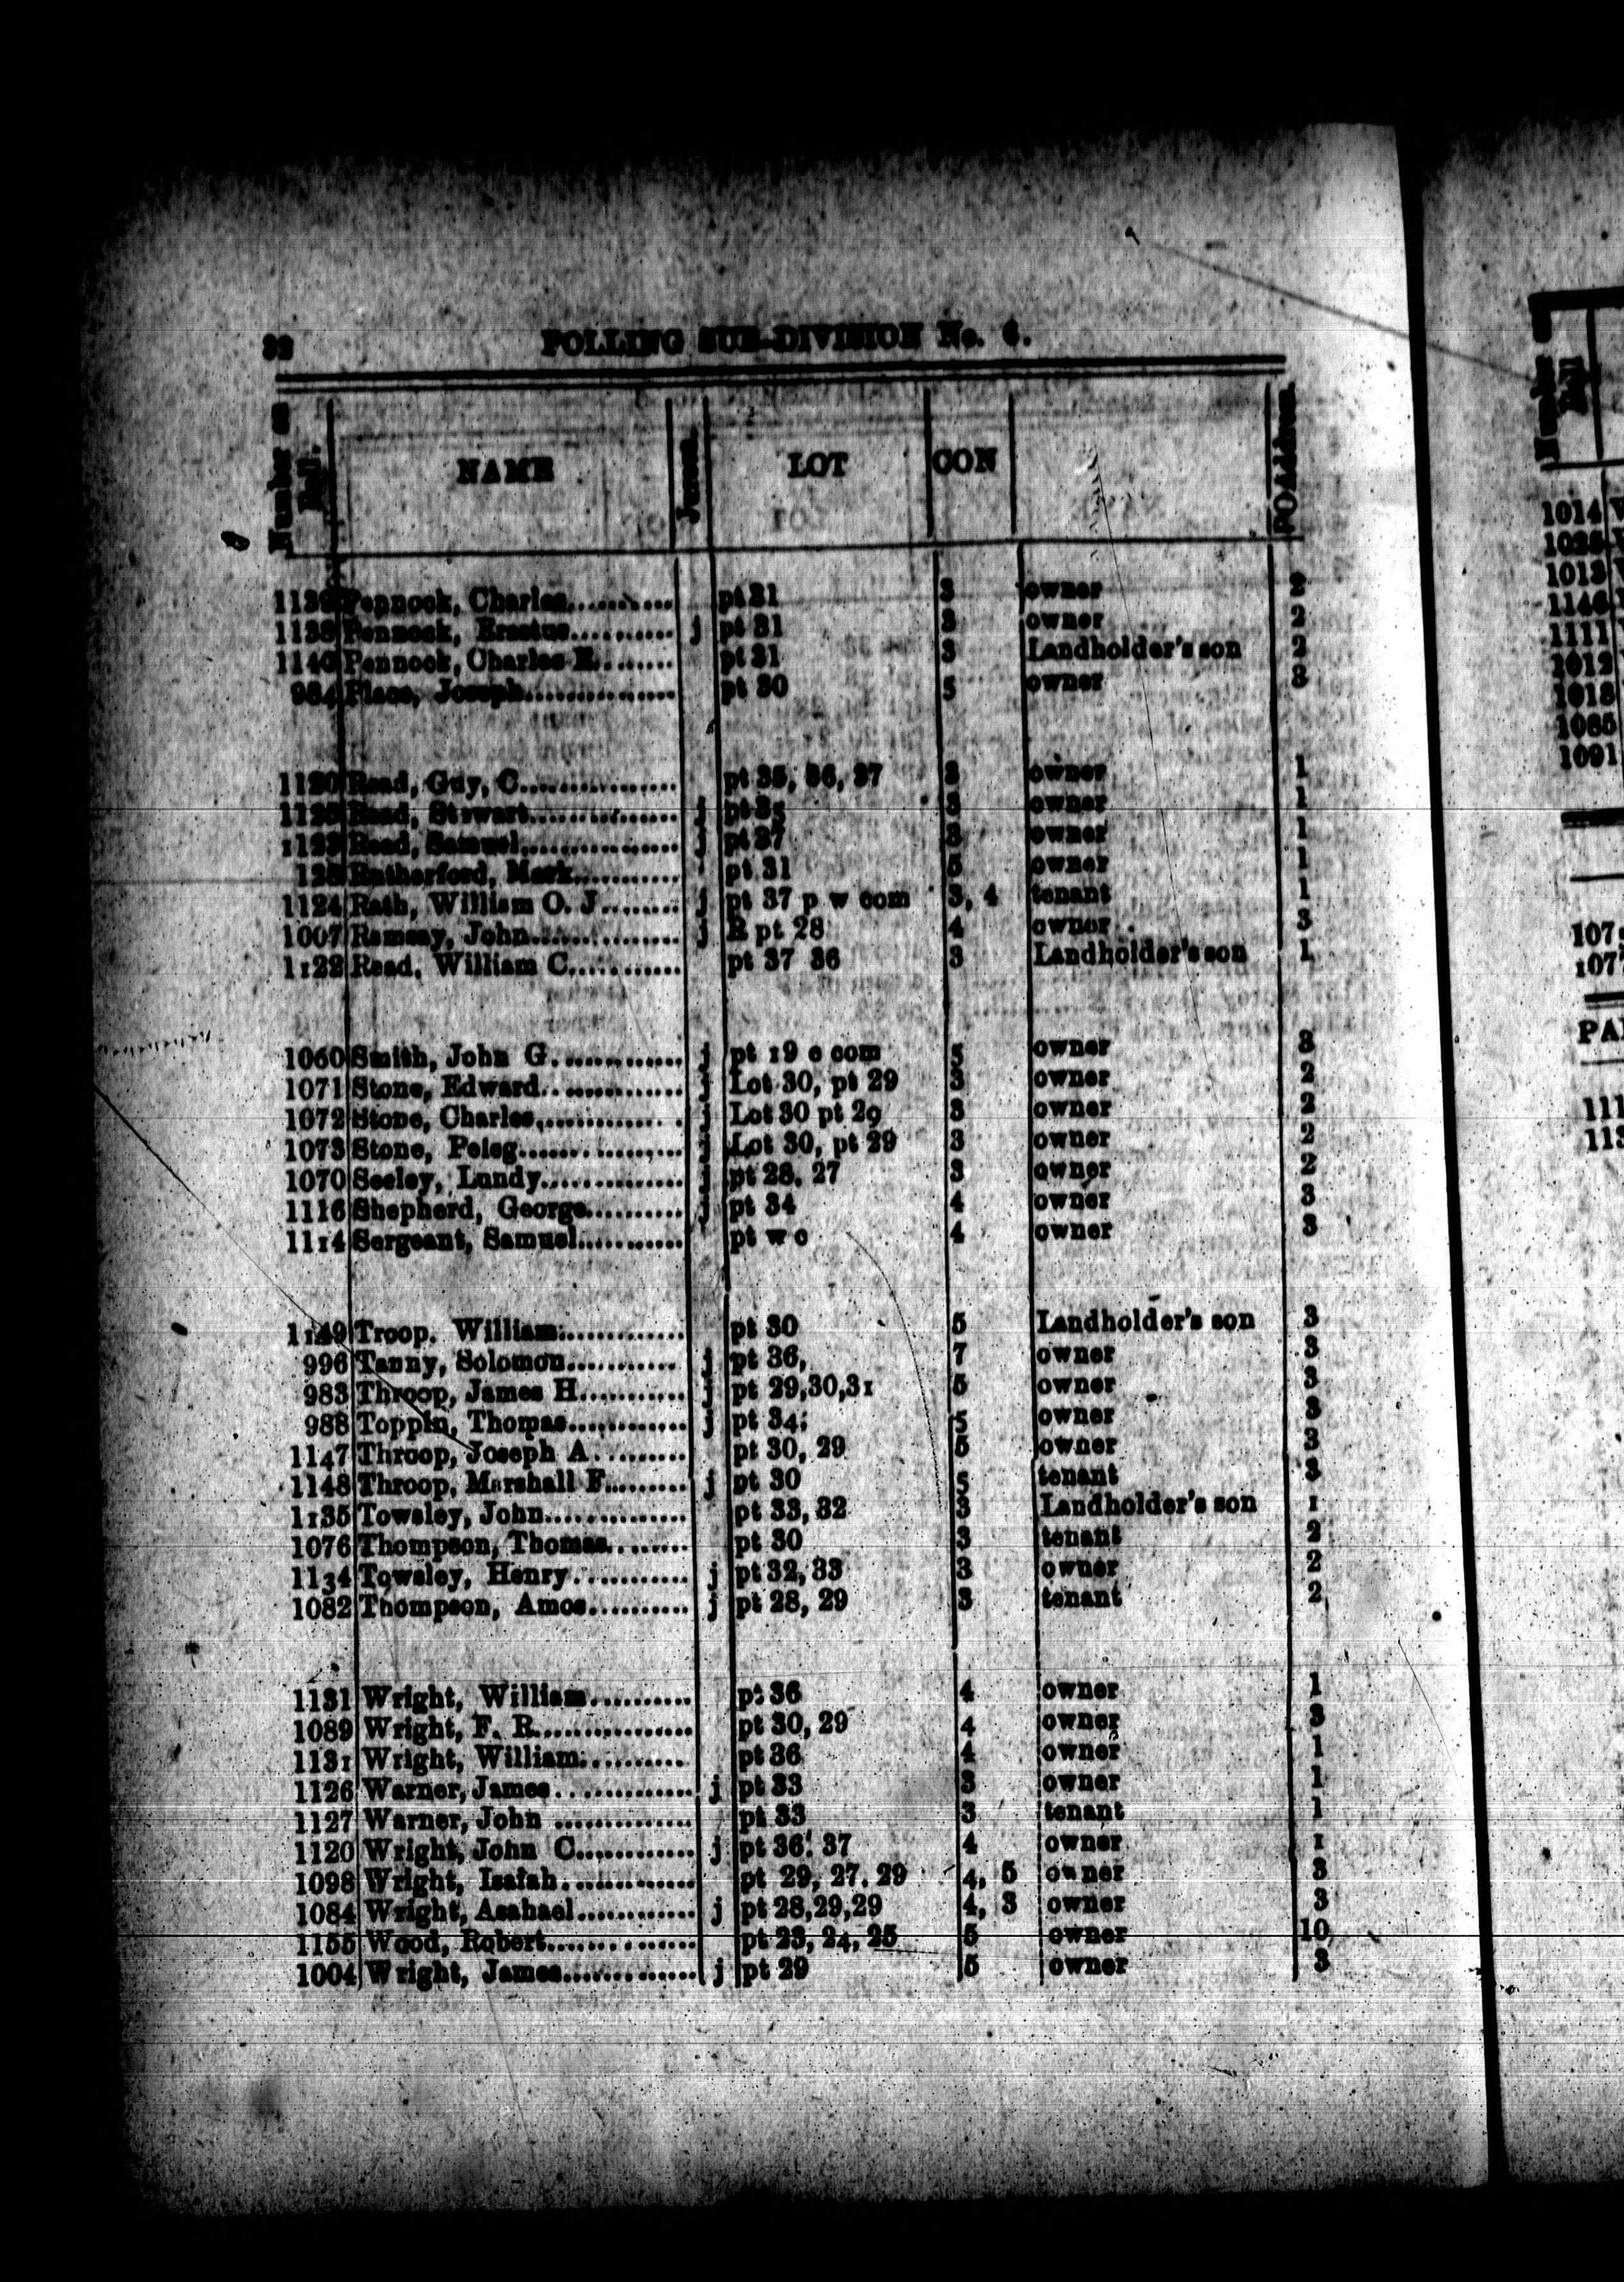 32 POLLING SUB-DIVISION No. 6.
Number on Roll. NAME Jurors. LOT CON POAddress.
Pennock, Charles............ pt 31 3 owner 2
1138 Pennock, Erastus.......... j pt 31 3 owner 2
1140 Pennock, Charles E........ pt 31 3 Landholder's son 2
984 Place, Joseph............... pt 30 5 owner 3
1120 Read, Guy, C................ pt 35, 36, 37 3 owner 1
1125 Read, Stewart............... j pt 35 3 owner 1
1123 Read, Samuel................ j pt 37 3 owner 1
Rutherford, Mark........... pt 31 5 owner 1
1124 Rath, William O. J........ j pt 37 p w com 3, 4 tenant 1
1007 Ramsay, John............... j R pt 28 4 owner 3
1122 Read, William C........... pt 37 36 3 Landholder's son 1
1060 Smith, John G............. j pt 19 e com 5 owner 3
1071 Stone, Edward.............. j Lot 30, pt 29 3 owner 2
1072 Stone, Charles............. j Lot 30 pt 29 3 owner 2
1073 Stone, Peleg................ j Lot 30, pt 29 3 owner 2
1070 Seeley, Lundy.............. j pt 28, 27 3 owner 2
1116 Shepherd, George.......... j pt 34 4 owner 3
1114 Sergeant, Samuel........... pt w c 4 owner 3
1149 Troop. William............. pt 30 5 Landholder's son 3
996 Tanny, Solomon........... j pt 36, 7 owner 3
983 Throop, James H........... j pt 29,30,31 5 owner 3
988 Toppin, Thomas............ j pt 34; 5 owner 3
1147 Throop, Joseph A......... pt 30, 29 5 owner 3
1148 Throop, Marshall F........ j pt 30 5 tenant 3
1135 Towsley, John.............. pt 33, 32 3 Landholder's son 1
1076 Thompson, Thomas........ pt 30 3 tenant 2
1134 Towsley, Henry........... j pt 32, 33 3 owner 2
1082 Thompson, Amos.......... j pt 28, 29 3 tenant 2
1131 Wright, William.......... pt 36 4 owner 1
1089 Wright, F. R................ pt 30, 29 4 owner 3
1131 Wright, William.......... pt 36 4 owner 1
1126 Warner, James............. j pt 33 3 owner 1
1127 Warner, John .............. pt 33 3 tenant 1
1120 Wright, John C............ j pt 36, 37 4 owner 1
1098 Wright, Isaiah............. pt 29, 27, 29 4, 5 owner 3
1084 Wright, Asahael............ j pt 28,29,29 4, 3 owner 3
1155 Wood, Robert............... pt 23, 24, 25 5 owner 10
1004 Wright, James............. j pt 29 5 owner 3
Number on Roll
1014
1025
1013
1146
1111
1012
1018
1085
1091
107
107
PA
111
113